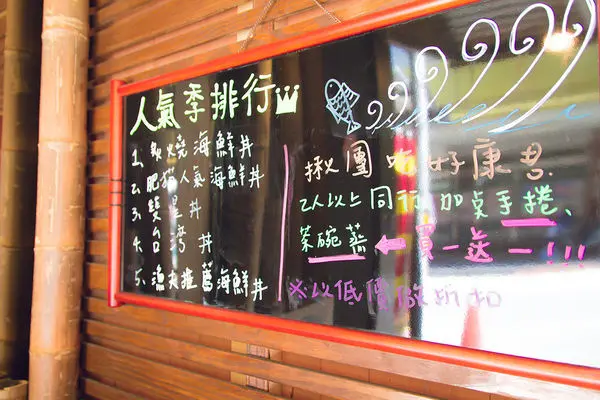 人氣季排行
1、炙燒海鮮丼
2、肥猫人氣海鮮丼
3、雙星丼
4、台灣丼
5、漁夫推薦海鮮丼
揪團吃好康
2人以上同行 加点手捲、
茶碗蒸←買一送一!!!
※以低價做折扣